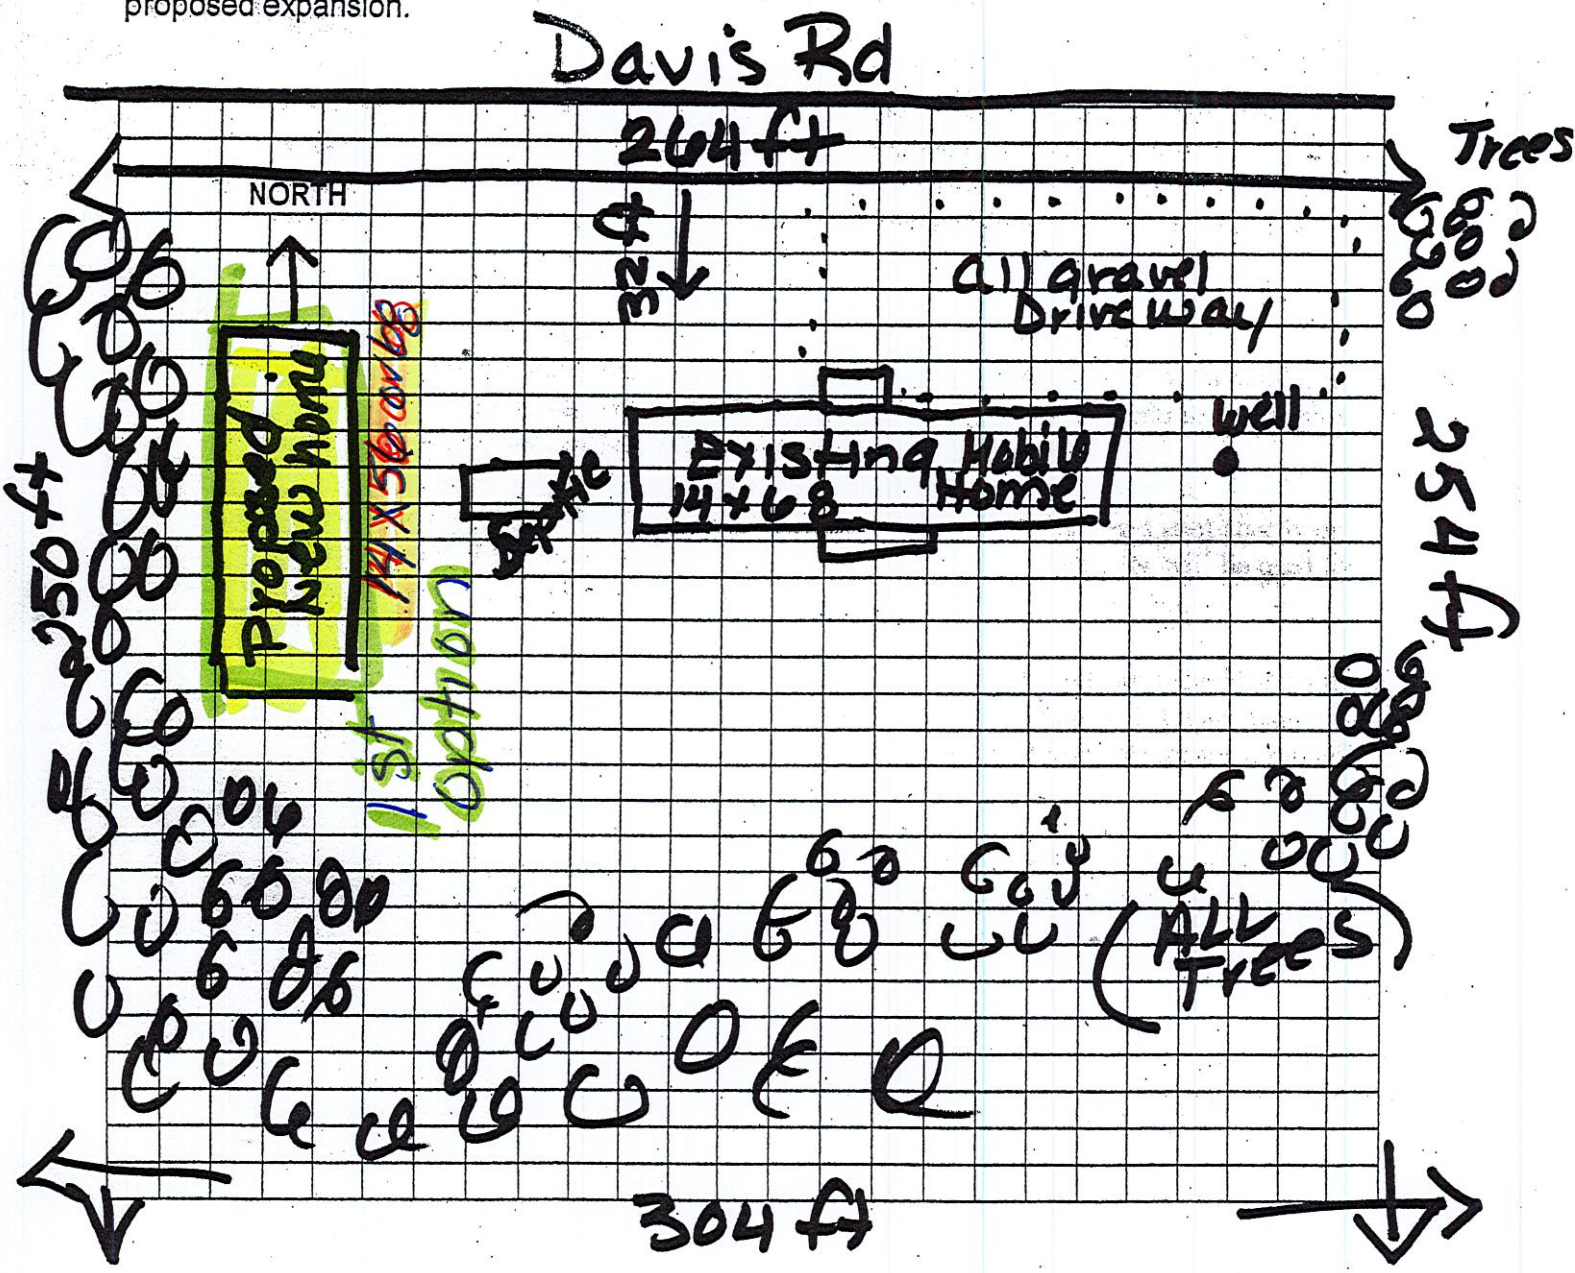 proposed expansion.
Davis Rd
264 ft
Trees
NORTH
32 ft
All gravel
Driveway
well
Existing Mobile
14 x 68 Home
Septic
Proposed
New Home
14 x 56 or 68
1st
option
250 ft
254 ft
(ALL
Trees)
304 ft